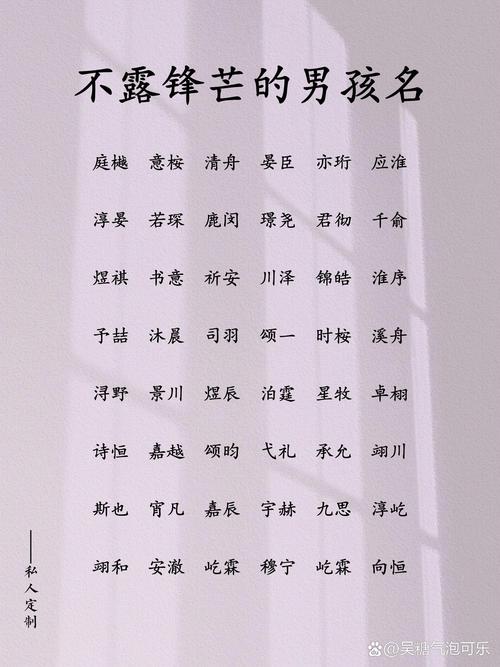 不露锋芒的男孩名
庭樾 意桉 清舟 晏臣 亦珩 应淮
淳晏 若琛 鹿闵 璟尧 君彻 千俞
煜祺 书意 祈安 川泽 锦皓 淮序
予喆 沐晨 司羽 颂一 时桉 溪舟
浔野 景川 煜辰 泊霆 星牧 卓栩
诗恒 嘉越 颂昀 弋礼 承允 翊川
斯也 宵凡 嘉辰 宇赫 九思 淳屹
翊和 安澈 屹霖 穆宁 屹霖 向恒
——私人定制
吴糖气泡可乐